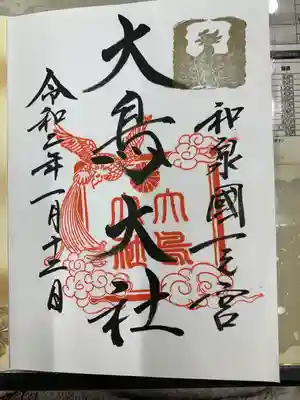 和泉國一之宮
大鳥大社
令和二年一月十二日
大鳥
大社